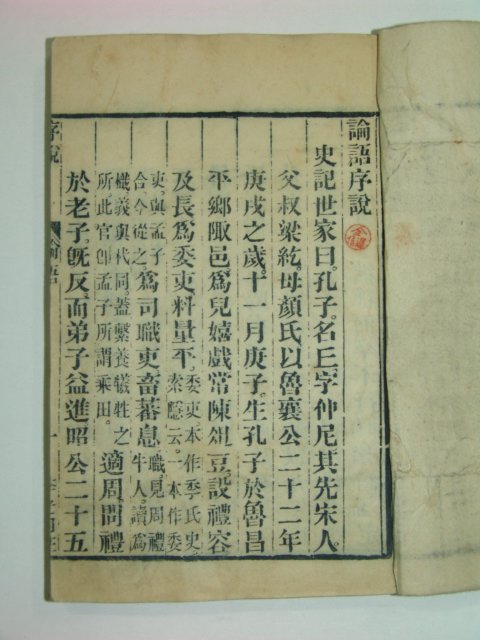 論語序說
史記世家曰。孔子。名丘。字仲尼。其先宋人。
父叔梁紇。母顏氏。以魯襄公二十二年
庚戌之歲。十一月庚子。生孔子於魯昌
平鄉陬邑。爲兒嬉戲。常陳俎豆。設禮容。
及長。爲委吏。料量平。委吏。本作季氏史。
索隱云。一本作委
吏。與孟子
合。今從之。爲司職吏。畜蕃息。職。見周禮
牛人。讀爲
樴。義與杙同。蓋繫養犧牲之
所。此官卽孟子所謂乘田。適周。問禮
於老子。旣反。而弟子益進。昭公二十五
序說